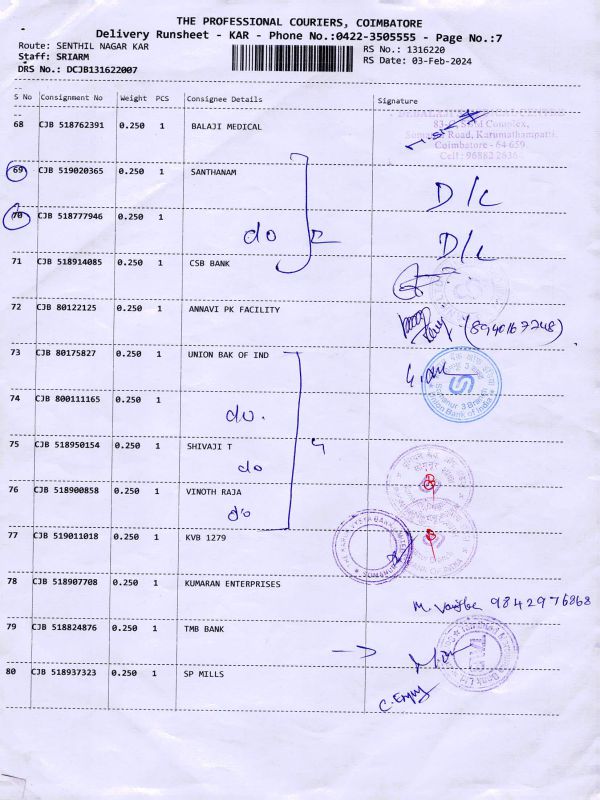 THE PROFESSIONAL COURIERS, COIMBATORE
Delivery Runsheet - KAR - Phone No.:0422-3505555 - Page No.:7
Route: SENTHIL NAGAR KAR
RS No.: 1316220
Staff: SRIARM
RS Date: 03-Feb-2024
DRS No.: DCJB131622007
S No Consignment No Weight PCS Consignee Details Signature
68 CJB 518762391 0.250 1 BALAJI MEDICAL
Complex,
Road, Karumathampatti,
Coimbatore - 64 659
Cell: 96882 2636
69 CJB 519020365 0.250 1 SANTHANAM D/L
70 CJB 518777946 0.250 1 do D/L
71 CJB 518914085 0.250 1 CSB BANK
72 CJB 80122125 0.250 1 ANNAVI PK FACILITY (8940167248)
73 CJB 80175827 0.250 1 UNION BAK OF IND
Somanur 3 Branch
Union Bank of India
74 CJB 800111165 0.250 1 do.
75 CJB 518950154 0.250 1 SHIVAJI T
do
76 CJB 518900858 0.250 1 VINOTH RAJA
do
77 CJB 519011018 0.250 1 KVB 1279
78 CJB 518907708 0.250 1 KUMARAN ENTERPRISES
9842976868
79 CJB 518824876 0.250 1 TMB BANK
80 CJB 518937323 0.250 1 SP MILLS